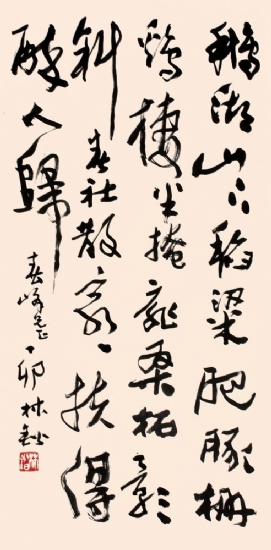 鵝湖山下稻粱肥豚柵
鷄棲半掩扉桑柘影
斜春社散家〻扶得
醉人歸
春峰 丁卯 林